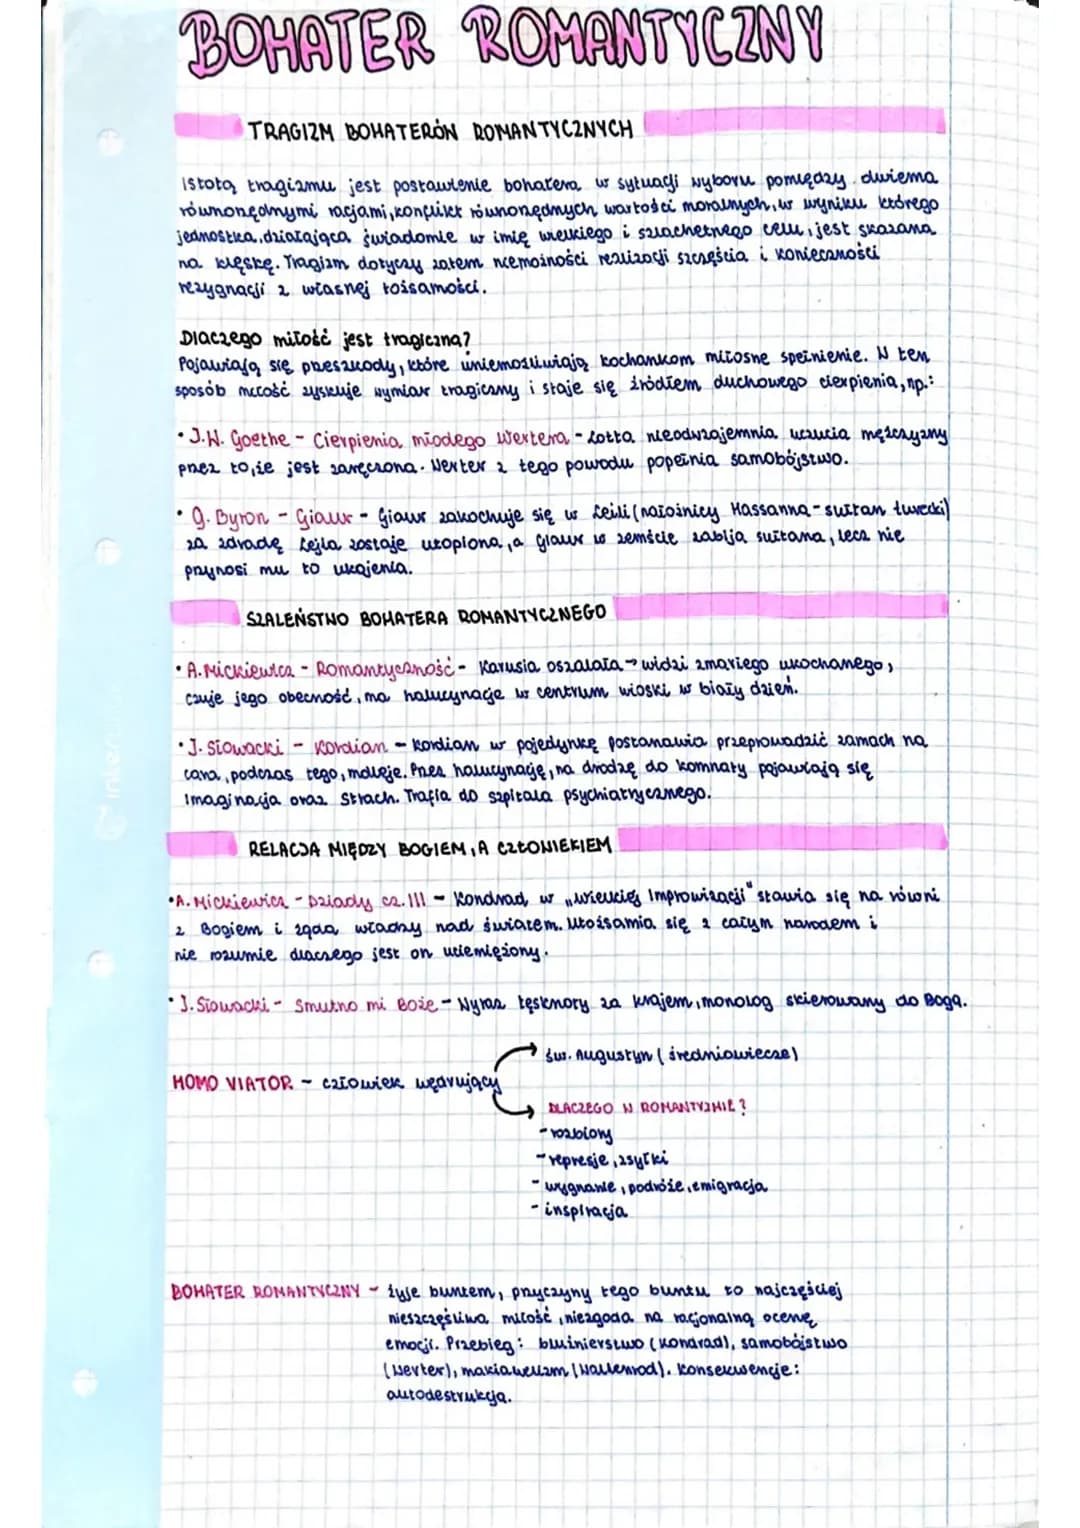 BOHATER ROMANTYCZNY
TRAGIZM BOHATERÓW ROMANTYCZNYCH
Istotą tragizmu jest postawienie bohatera w sytuacji wyboru pomiędzy dwiema
równorzędnymi racjami, konflikt równorzędnych wartości moralnych, w wyniku którego
jednostka, działająca świadomie w imię wielkiego i szlachetnego celu, jest skazana
na klęskę. Tragizm dotyczy zatem niemożności realizacji szczęścia i konieczności
rezygnacji z własnej tożsamości.
Dlaczego miłość jest tragiczna?
Pojawiają się przeszkody, które uniemożliwiają kochankom miłosne spełnienie. W ten
sposób miłość zyskuje wymiar tragiczny i staje się źródłem duchowego cierpienia, np.:
• J.W. Goethe - Cierpienia młodego Wertera - Lotta nieodwzajemnia uczucia mężczyzny
przez to, że jest zaręczona. Werter z tego powodu popełnia samobójstwo.
• G. Byron - Giaur - Giaur zakochuje się w Leili (nałożnicy Hassanna - sułtan turecki)
za zdradę Lejla zostaje utopiona, a Giaur w zemście zabija sułtana, lecz nie
przynosi mu to ukojenia.
SZALEŃSTWO BOHATERA ROMANTYCZNEGO
• A. Mickiewicz - Romantyczność - Karusia oszalała → widzi zmarłego ukochanego,
czuje jego obecność, ma halucynacje w centrum wioski w biały dzień.
• J. Słowacki - Kordian - Kordian w pojedynkę postanawia przeprowadzić zamach na
cara, podczas tego, mdleje. Przez halucynację, na drodze do komnaty pojawiają się
Imaginacja oraz Strach. Trafia do szpitala psychiatrycznego.
RELACJA MIĘDZY BOGIEM, A CZŁOWIEKIEM
• A. Mickiewicz - Dziady cz. III - Kondrad, w „Wielkiej Improwizacji" stawia się na równi
z Bogiem i żąda władzy nad światem. Utożsamia się z całym narodem i
nie rozumie dlaczego jest on uciemiężony.
• J. Słowacki - Smutno mi Boże - Wyraz tęsknoty za krajem, monolog skierowany do Boga.
św. Augustyn (średniowiecze)
HOMO VIATOR - człowiek wędrujący
DLACZEGO W ROMANTYZMIE?
- rozbiory
- represje, zsyłki
- wygnanie, podróże, emigracja
- inspiracja
BOHATER ROMANTYCZNY - żyje buntem, przyczyny tego buntu to najczęściej
nieszczęśliwa miłość, niezgoda na racjonalną ocenę
emocji. Przebieg: bluźnierstwo (Kondrad), samobójstwo
(Werter), makiawelizm (Wallenrod). Konsekwencje:
autodestrukcja.